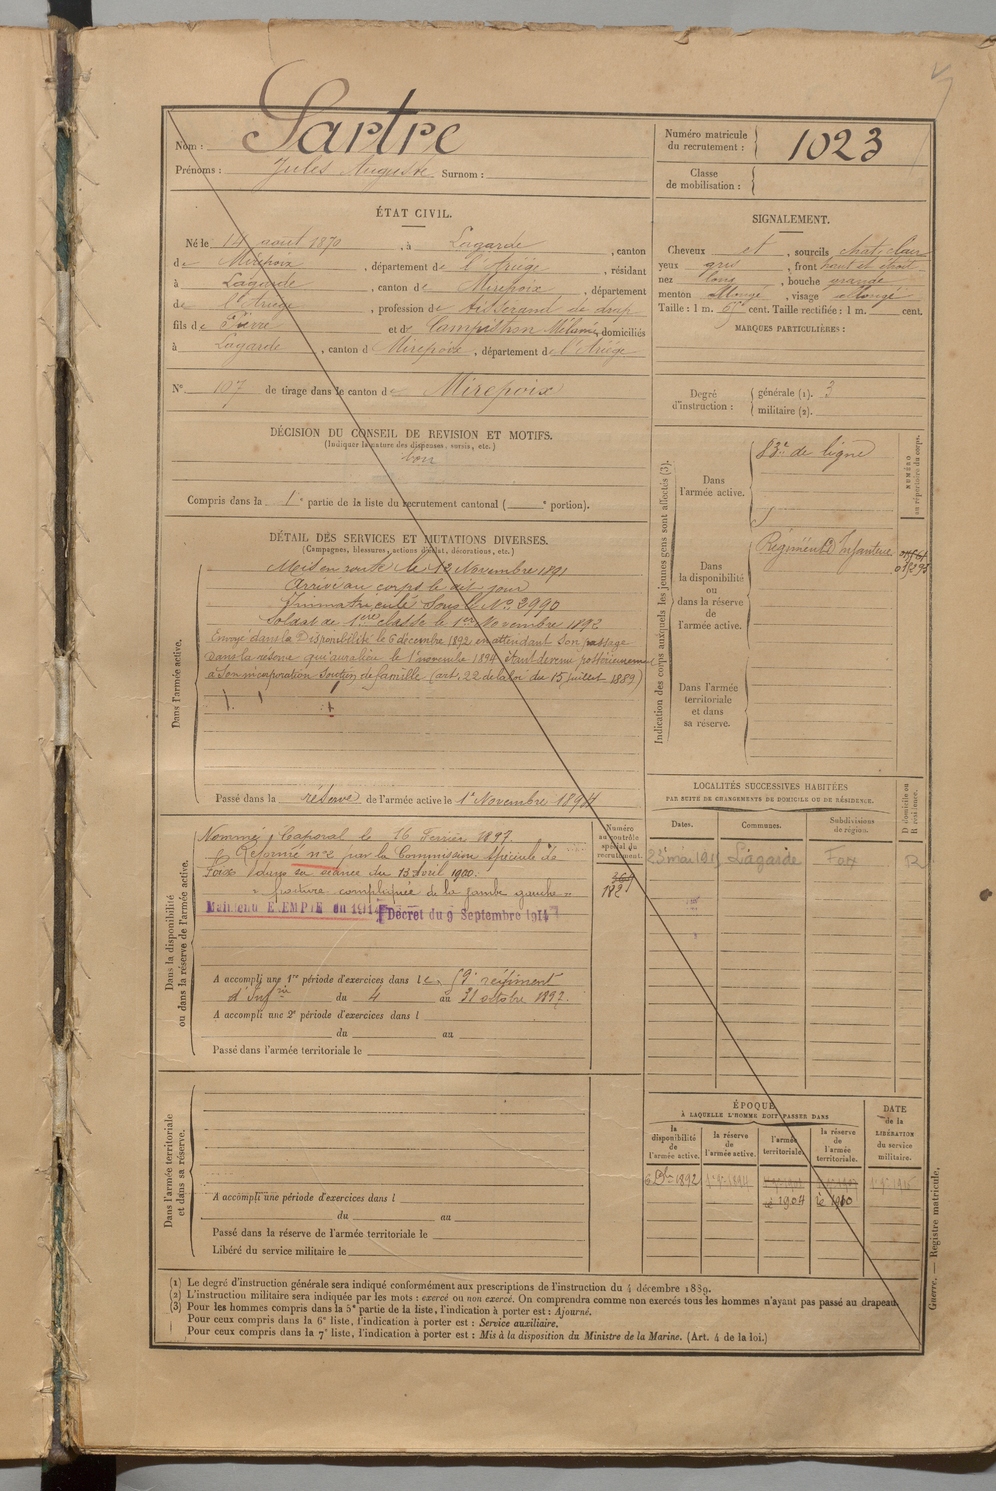 Nom : Sartre
Prénoms : Jules Auguste Surnom :
Numéro matricule du recrutement : 1023
Classe de mobilisation :
ÉTAT CIVIL.
Né le 14 août 1870, à Lagarde, canton
de Mirepoix, département de l'Ariège, résidant
à Lagarde, canton de Mirepoix, département
de l'Ariège, profession de tisserand de drap
fils de Pierre et de Mélanie, domiciliés
à Lagarde, canton de Mirepoix, département de l'Ariège
N° 107 de tirage dans le canton de Mirepoix
SIGNALEMENT.
Cheveux et, sourcils chat. clair
yeux gris, front haut et étroit
nez long, bouche grande
menton allongé, visage allongé
Taille : 1 m. cent. Taille rectifiée : 1 m. cent.
MARQUES PARTICULIÈRES :
Degré d'instruction : générale (1). 3
militaire (2).
DÉCISION DU CONSEIL DE REVISION ET MOTIFS.
(Indiquer la nature des dispenses, sursis, etc.)
bon
Compris dans la 1e partie de la liste du recrutement cantonal ( e portion).
DÉTAIL DES SERVICES ET MUTATIONS DIVERSES.
(Campagnes, blessures, actions d'éclat, décorations, etc.)
Dans l'armée active.
Mis en route le 12 Novembre 1891
Arrivé au corps le dit jour
Immatriculé sous le N° 2990
Soldat de 1ère classe le 1er Novembre 1892
Envoyé dans la Disponibilité le 6 décembre 1892 en attendant son passage
dans la réserve qui aura lieu le 1er novembre 1894 étant devenu postérieurement
à son incorporation soutien de famille (art. 22 de la loi du 15 juillet 1889)
Passé dans la réserve de l'armée active le 1er Novembre 1894
Indication des corps auxquels les jeunes gens sont affectés (3).
NUMÉRO au répertoire du corps.
Dans l'armée active.
83e de ligne
Dans la disponibilité ou dans la réserve de l'armée active.
Régiment d'Infanterie
Dans l'armée territoriale et dans sa réserve.
LOCALITÉS SUCCESSIVES HABITÉES
PAR SUITE DE CHANGEMENTS DE DOMICILE OU DE RÉSIDENCE.
Dates. Communes. Subdivisions de région. D domicile ou R résidence.
Lagarde Foix R
Dans la disponibilité ou dans la réserve de l'armée active.
Numéro au contrôle spécial du recrutement.
Nommé Caporal le 16 Février 1897.
Réformé n° 2 par la Commission spéciale de
Foix dans sa séance du 13 Avril 1900.
"fracture compliquée de la jambe gauche"
Maintenu EXEMPTÉ Décret du 9 Septembre 1914
A accompli une 1re période d'exercices dans le 59e régiment
d'Infrie du 4 au 31 octobre 1897.
A accompli une 2e période d'exercices dans l
du au
Passé dans l'armée territoriale le
Dans l'armée territoriale et dans sa réserve.
A accompli une période d'exercices dans l
du au
Passé dans la réserve de l'armée territoriale le
Libéré du service militaire le
ÉPOQUE
À LAQUELLE L'HOMME DOIT PASSER DANS
la disponibilité de l'armée active. la réserve de l'armée active. l'armée territoriale. la réserve de l'armée territoriale.
DATE de la LIBÉRATION du service militaire.
6 Dbre 1892
1904
(1) Le degré d'instruction générale sera indiqué conformément aux prescriptions de l'instruction du 4 décembre 1889.
(2) L'instruction militaire sera indiquée par les mots : exercé ou non exercé. On comprendra comme non exercés tous les hommes n'ayant pas passé au drapeau.
(3) Pour les hommes compris dans la 5e partie de la liste, l'indication à porter est : Ajourné.
Pour ceux compris dans la 6e liste, l'indication à porter est : Service auxiliaire.
Pour ceux compris dans la 7e liste, l'indication à porter est : Mis à la disposition du Ministre de la Marine. (Art. 4 de la loi.)
Guerre. — Registre matricule.